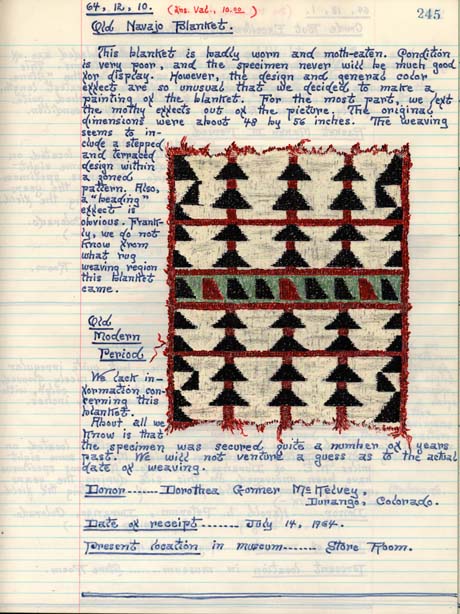 64, 12, 10. (Ins. Val., 10.00)
245
Old Navajo Blanket.
This blanket is badly worn and moth-eaten. Condition
is very poor, and the specimen never will be much good
for display. However, the design and general color
effect are so unusual that we decided to make a
painting of the blanket. For the most part, we left
the mothy effects out of the picture. The original
dimensions were about 48 by 56 inches. The weaving
seems to in-
clude a stepped
and terraced
design within
a zoned
pattern. Also,
a "beading"
effect is
obvious. Frank-
ly, we do not
know from
what rug
weaving region
this blanket
came.
Old
Modern
Period
We lack in-
formation con-
cerning this
blanket.
About all we
know is that
the specimen was secured quite a number of years
past. We will not venture a guess as to the actual
date of weaving.
Donor------- Dorothea Gomer McKelvey,
Durango, Colorado.
Date of receipt------- July 14, 1964.
Present location in museum------- Store Room.